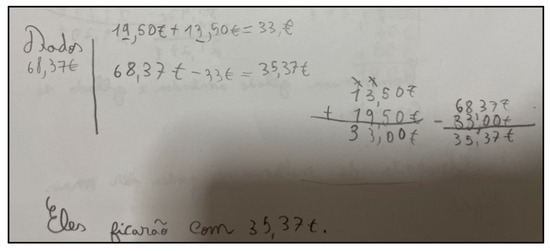 Dados
68,37€
19,50€ + 13,50€ = 33,€
68,37€ - 33€ = 35,37€
13,50€
+ 19,50€
33,00€
68,37€
- 33,00€
35,37€
Eles ficarão com 35,37€.